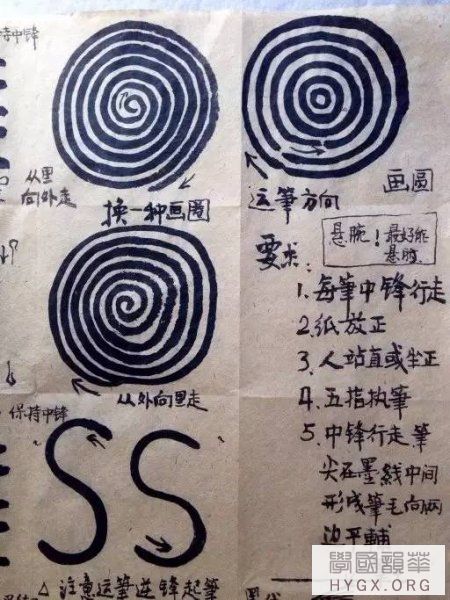 持中锋
从里
向外走
换一种画圈
运筆方向
画圓
悬腕！最好能
悬肘.
要求:
1. 每筆中锋行走
2. 纸放正
3. 人站直或坐正
4. 五指执筆
5. 中锋行走筆
尖在墨线中间
形成筆毛向两
边平輔
从外向里走
保持中锋
SS
△ 注意运筆逆锋起筆
學國韻華
HYGX.ORG